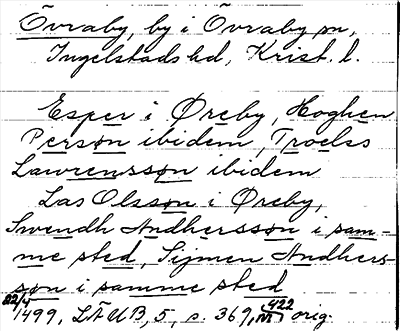 Övraby, by i Övraby sn,
Ingelstads hd, Krist. l.
Esper i Øreby, Hoghen
Person ibidem, Troels
Lawrensson ibidem
Las Olsson i Øreby,
Swendh Andhersson i sam-
me sted, Sijmen Andhers-
son i samme sted
22/4
1499, LÄUB, 5, s. 369, orig.